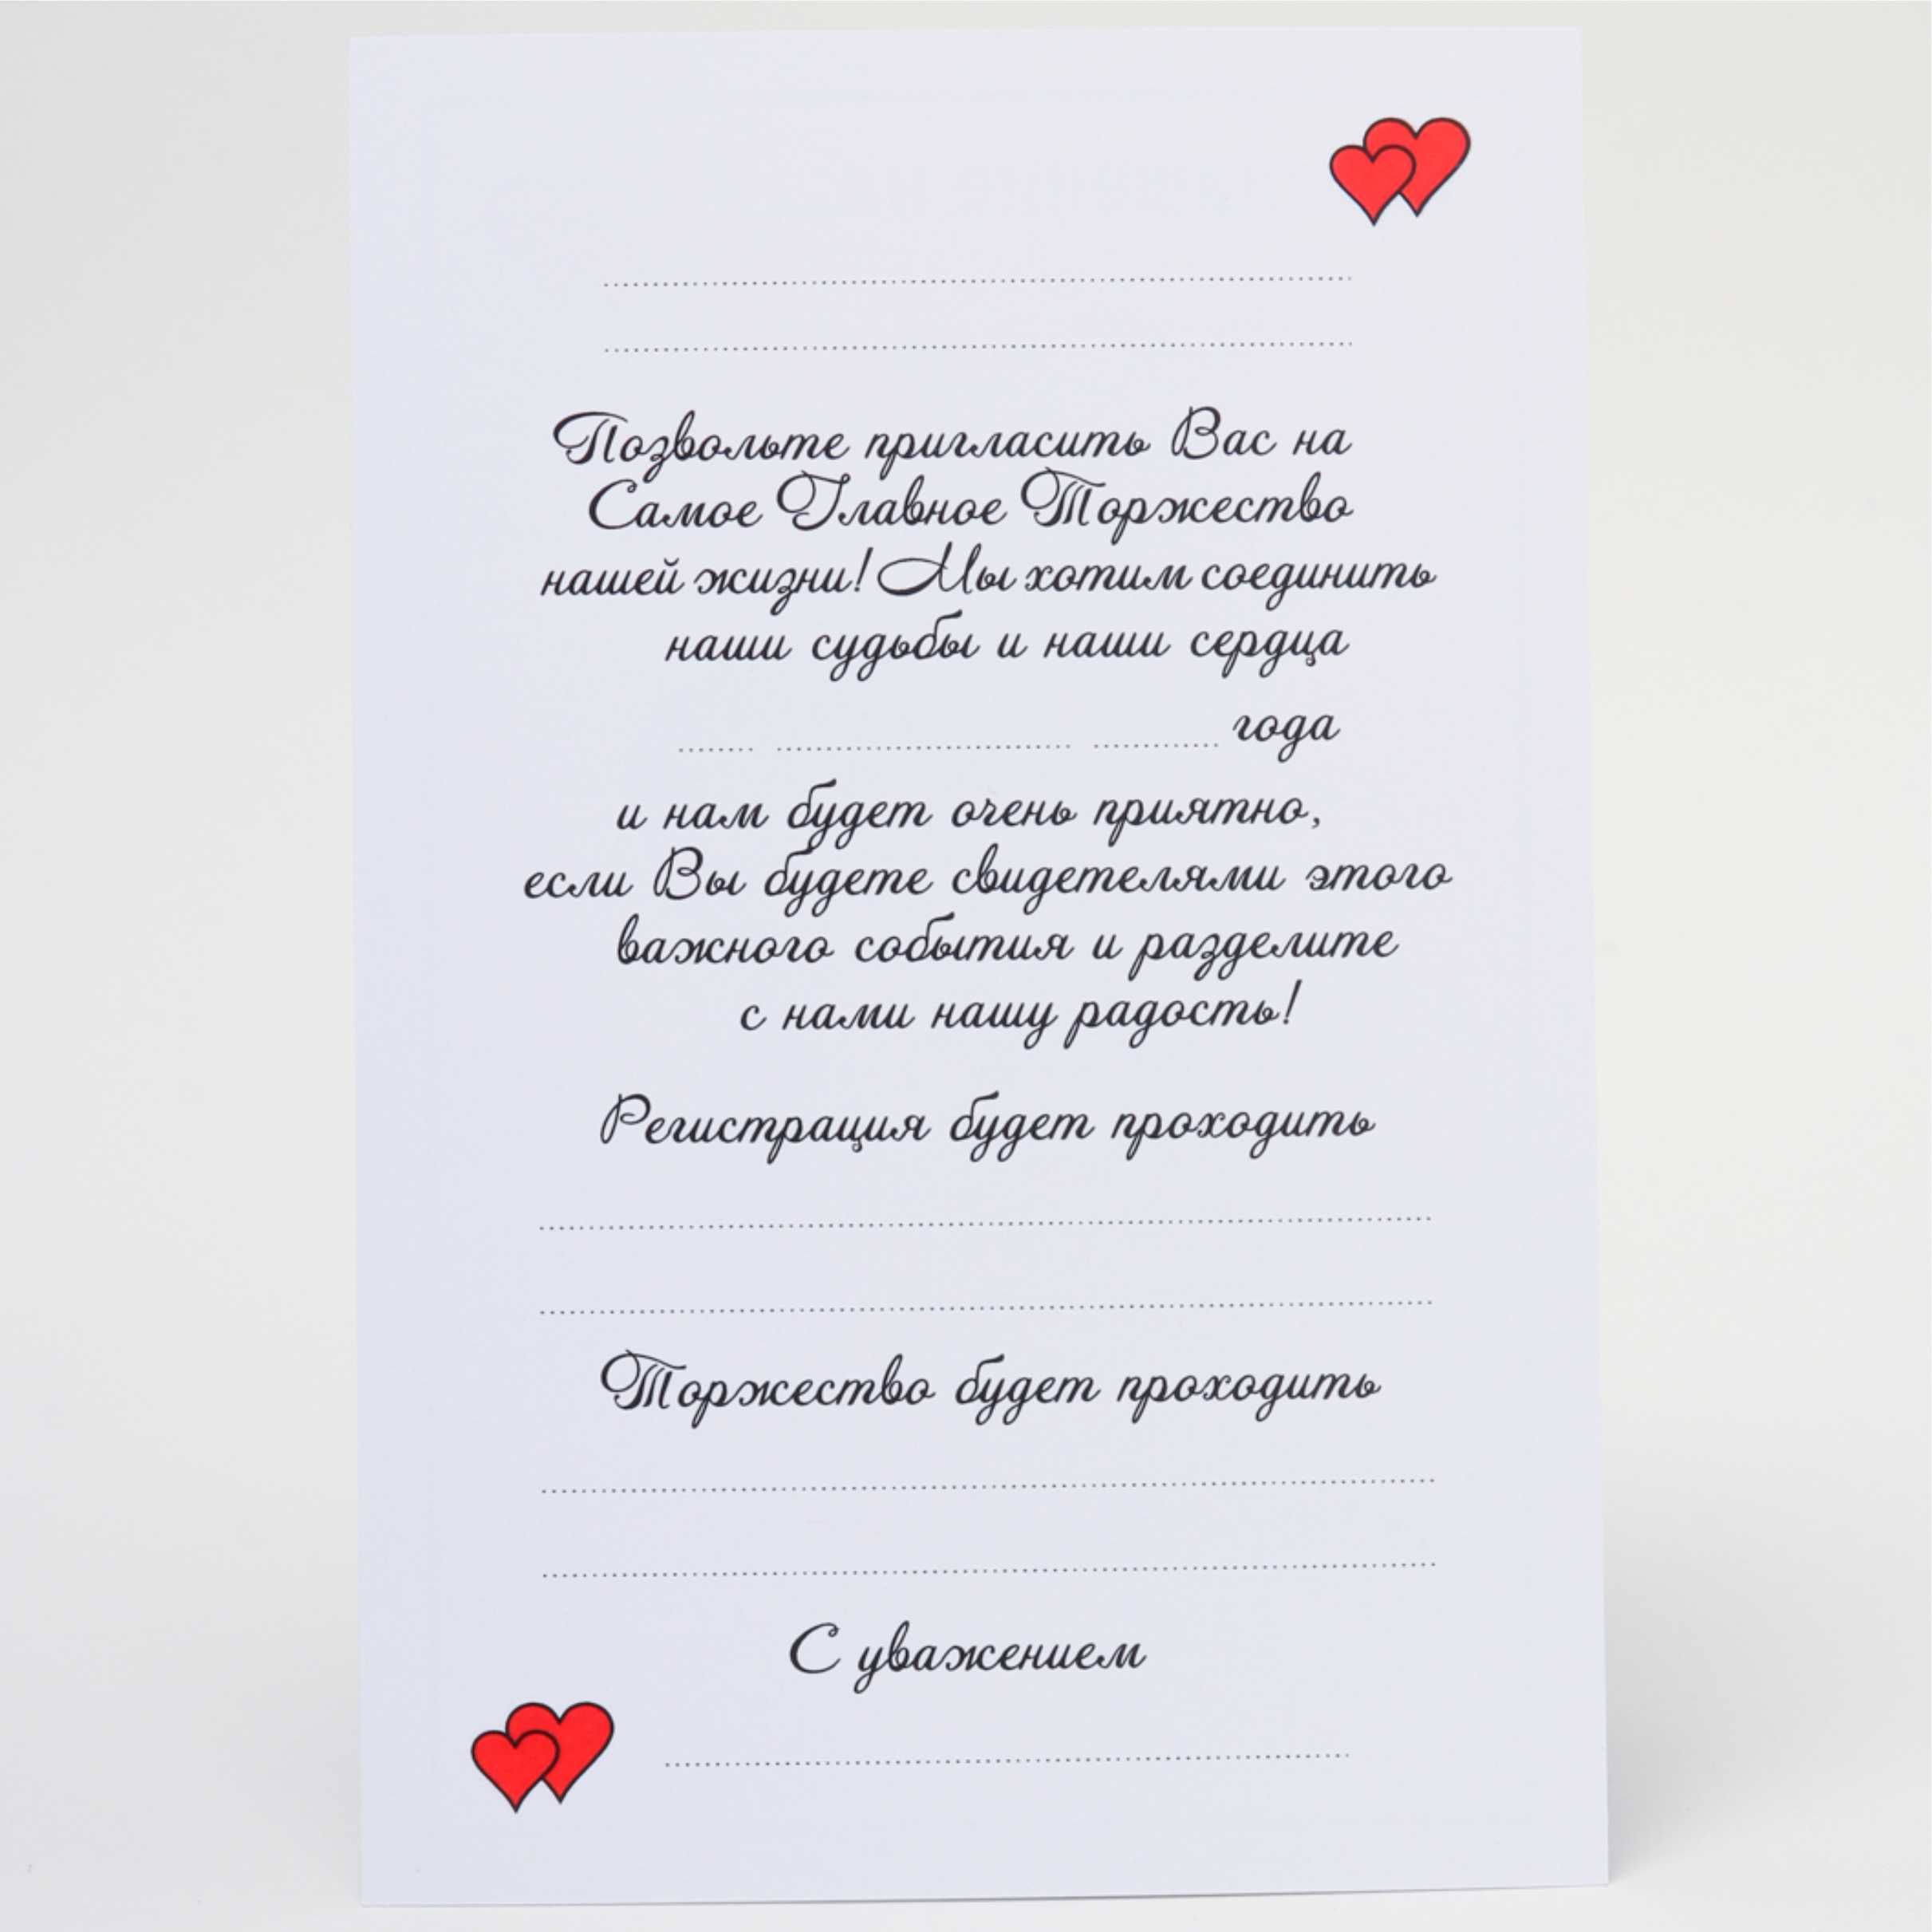 Позвольте пригласить Вас на
Самое Главное Торжество
нашей жизни! Мы хотим соединить
наши судьбы и наши сердца
года
и нам будет очень приятно,
если Вы будете свидетелями этого
важного события и разделите
с нами нашу радость!
Регистрация будет проходить
Торжество будет проходить
С уважением